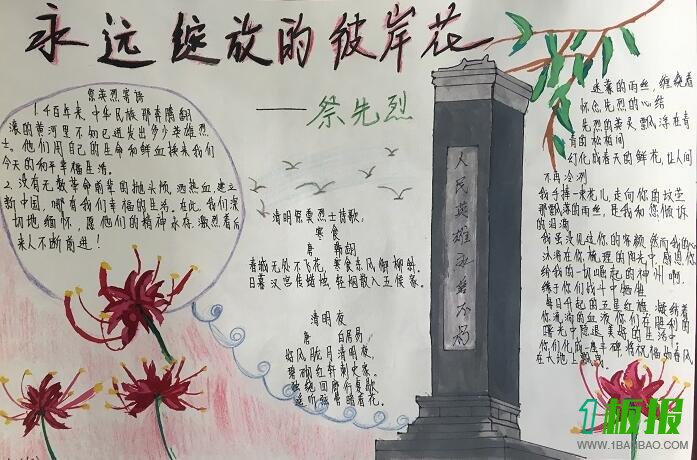 永远绽放的彼岸花
——祭先烈
祭英烈寄语
1.千百年来,中华民族那奔腾翻
滚的黄河里不知已迸发出多少英雄烈
士。他们用自己的生命和鲜血换来我们
今天的和平幸福生活。
2.没有无数革命前辈的抛头颅,洒热血,建立
新中国,哪有我们幸福的生活。在此,我们深
切地缅怀,愿他们的精神永存,激烈着后
来人不断前进!
清明祭英烈士诗歌:
寒食
唐 韩翃
春城无处不飞花,寒食东风御柳斜。
日暮汉宫传蜡烛,轻烟散入五侯家。
清明夜
唐 白居易
好风胧月清明夜,
碧砌红轩刺史家。
独绕回廊行复歇,
遥听弦管暗看花。
人民英雄永垂不朽
迷蒙的雨丝,缠绕着
怀念先烈的心结
先烈的英灵飘浮在青
青的松柏间
幻化成春天的鲜花,让人间
不再冷冽
我手捧一束花儿,走向你的坟茔
那飘落的雨丝,是我和您倾诉
的泪滴
我虽没见过你的容颜 然而我的心
沐浴在你梳理的阳光中,感恩你
给我的一切
崛起的神州啊,
缘于你们战斗中牺牲
每日升起的五星红旗,凝结着
你流淌的血液 你们在胜利的
曙光中隐退 美好的生活中
你们化成一座丰碑,将祝福如春风
在大地上飘
1板报
WWW.1BANBAO.COM